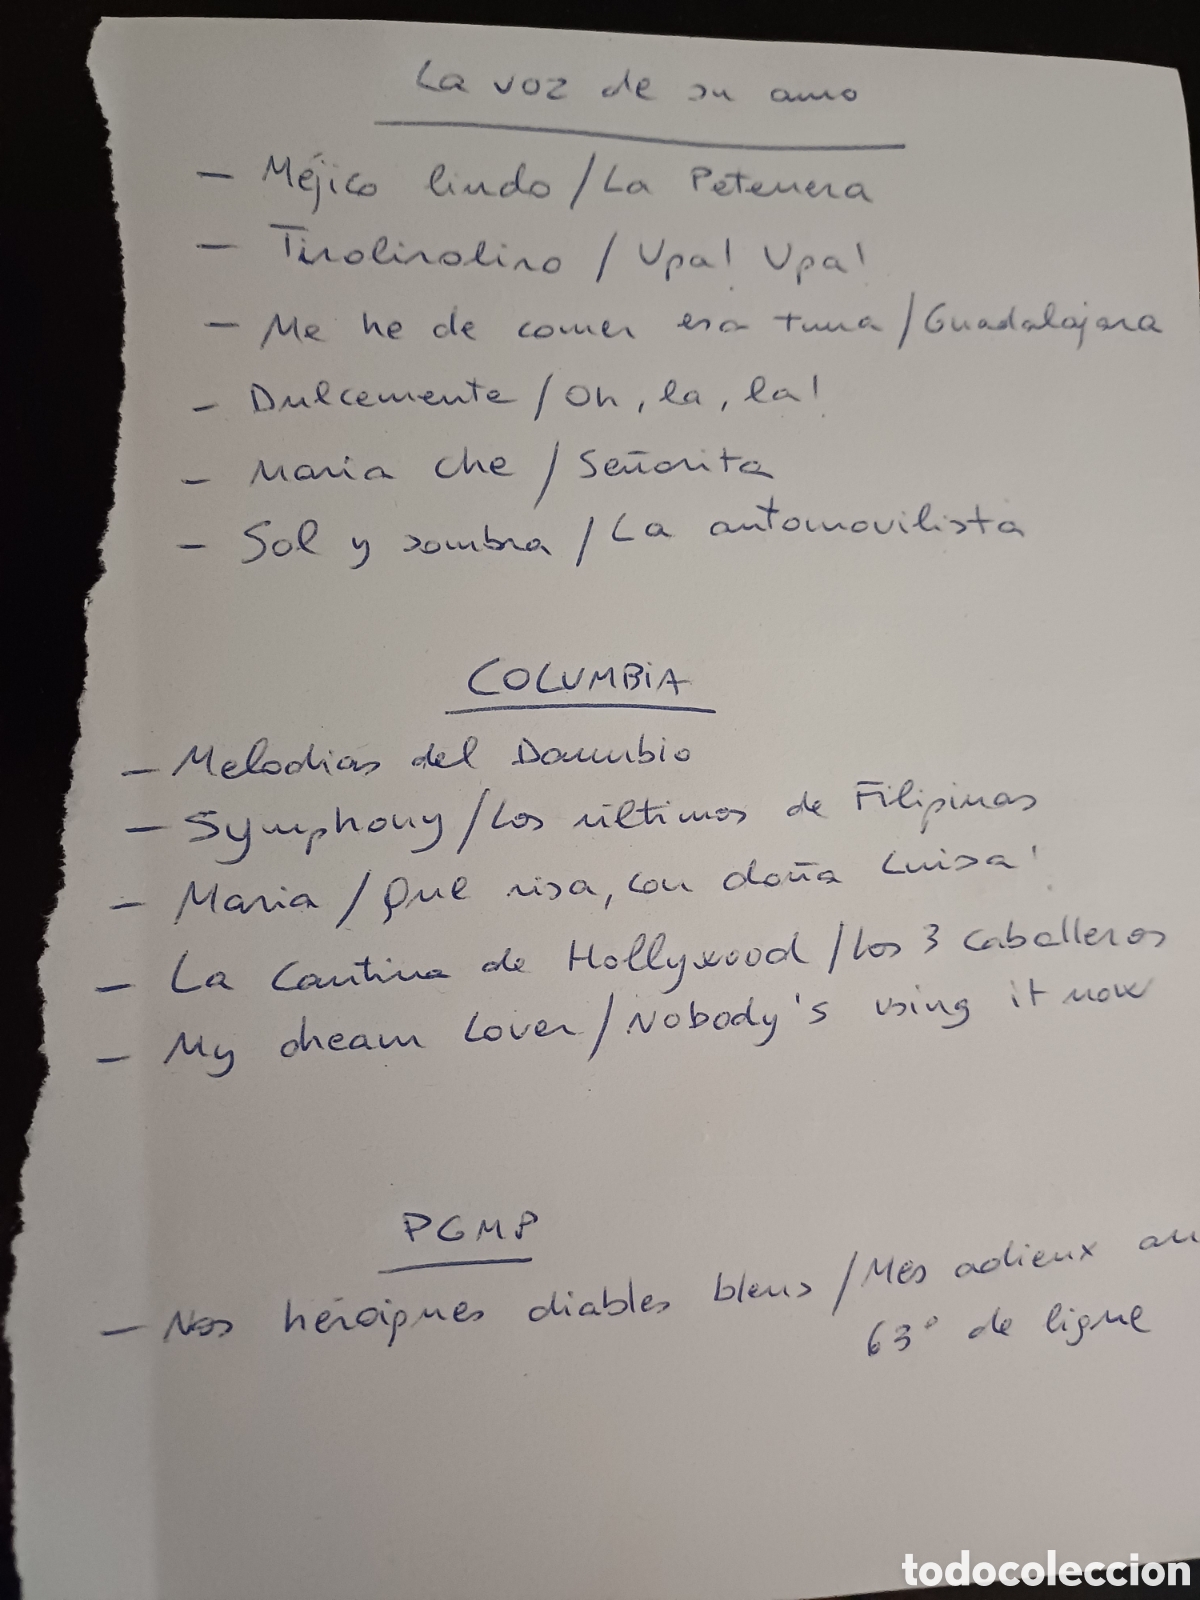 La voz de su amo
- Méjico lindo / La Petenera
- Tiroliroliro / Upa! Upa!
- Me he de comer esa tuna / Guadalajara
- Dulcemente / Oh, la, la!
- Maria che / Señorita
- Sol y sombra / La automovilista
COLUMBIA
- Melodias del Danubio
- Symphony / Los últimos de Filipinas
- Maria / Que risa, con doña Luisa!
- La Cantina de Hollywood / Los 3 caballeros
- My dream Lover / Nobody's using it now
PGMP
- Nos héroiques diables bleus / Mes adieux au
63° de ligne
todocoleccion